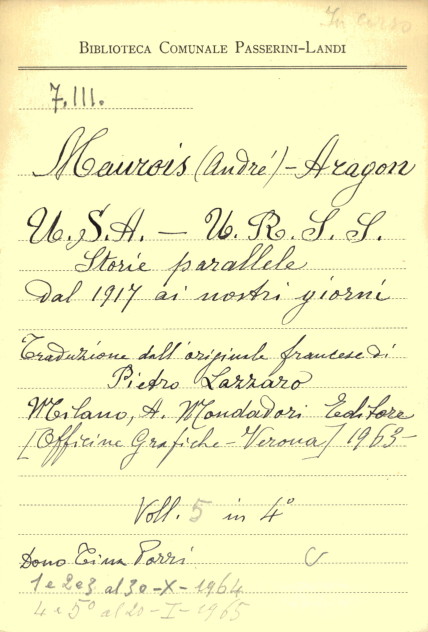 In corso
BIBLIOTECA COMUNALE PASSERINI-LANDI
7.III.
Maurois (André) - Aragon
U.S.A. — U.R.S.S.
Storie parallele
dal 1917 ai nostri giorni
Traduzione dall'originale francese di
Pietro Lazzaro
Milano, A. Mondadori Editore
[Officine Grafiche - Verona] 1963-
Voll. 5 in 4°
Dono Tina Porri
1 e 2 e 3 al 30-X-1964
4 e 5° al 20-I-1965